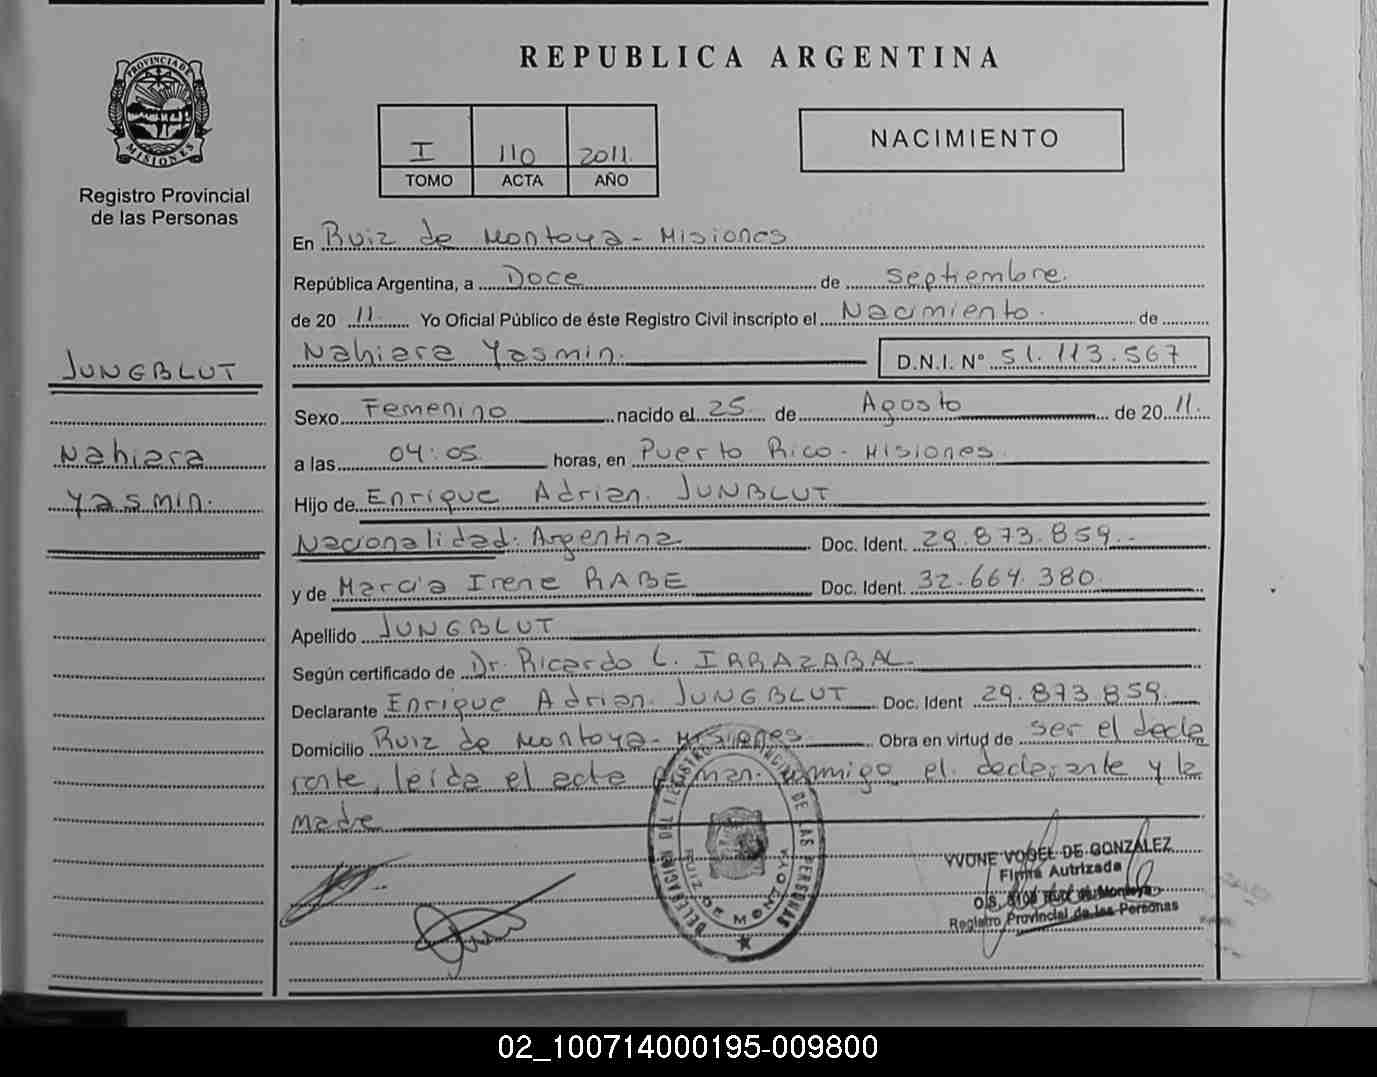 PROVINCIA DE
MISIONES
Registro Provincial
de las Personas
JUNGBLUT
Nahiara
Yasmin.
REPUBLICA ARGENTINA
I 110 2011.
TOMO ACTA AÑO
NACIMIENTO
En Ruiz de Montoya - Misiones
República Argentina, a Doce de Septiembre.
de 20 11. Yo Oficial Público de éste Registro Civil inscripto el Nacimiento. de
Nahiara Yasmin. D.N.I. N° 51.113.567
Sexo Femenino nacido el 25 de Agosto de 20 11.
a las 04:05 horas, en Puerto Rico - Misiones.
Hijo de Enrique Adrian. JUNBLUT
Nacionalidad: Argentina Doc. Ident. 29.873.859.
y de Marcia Irene RABE Doc. Ident. 32.664.380.
Apellido JUNGBLUT
Según certificado de Dr. Ricardo L. IRRAZABAL.
Declarante Enrique Adrian. JUNGBLUT Doc. Ident 29.873.859.
Domicilio Ruiz de Montoya - Misiones Obra en virtud de ser el decla
rante, leida el acta firman conmigo el declarante y la
Madre
DELEGACION DEL REGISTRO PROVINCIAL DE LAS PERSONAS
RUIZ DE MONTOYA
YVONE VOGEL DE GONZALEZ
Firma Autrizada
Ruiz de Montoya
Registro Provincial de las Personas
02_100714000195-009800